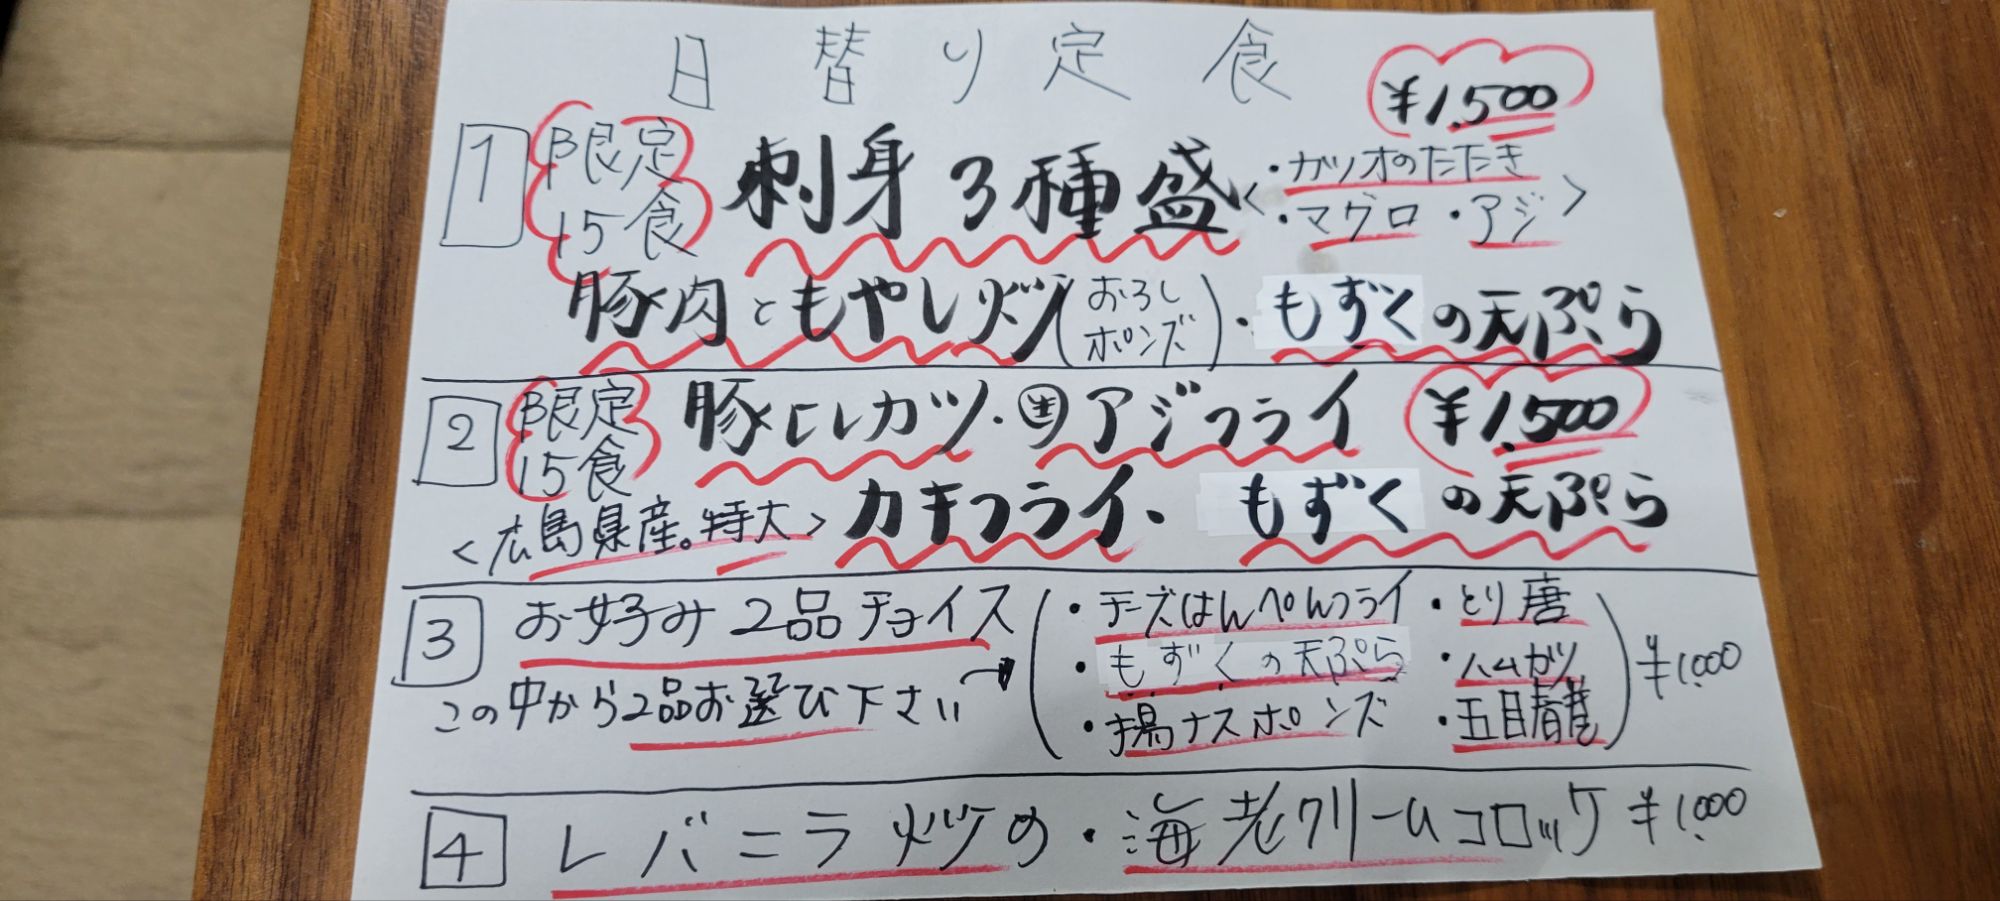 日替り定食
¥1,500
1 限定15食 刺身3種盛 <・カツオのたたき
・マグロ ・アジ>
豚肉ともやし炒メ(おろしポンズ)・もずくの天ぷら
2 限定15食 豚ヒレカツ・生アジフライ ¥1,500
<広島県産。特大> カキフライ・もずくの天ぷら
3 お好み2品チョイス (・チーズはんぺんフライ ・とり唐
・もずくの天ぷら ・ハムカツ ¥1,000
この中から2品お選び下さい→
・揚ナスポンズ ・五目春巻)
4 レバニラ炒め・海老クリームコロッケ ¥1,000